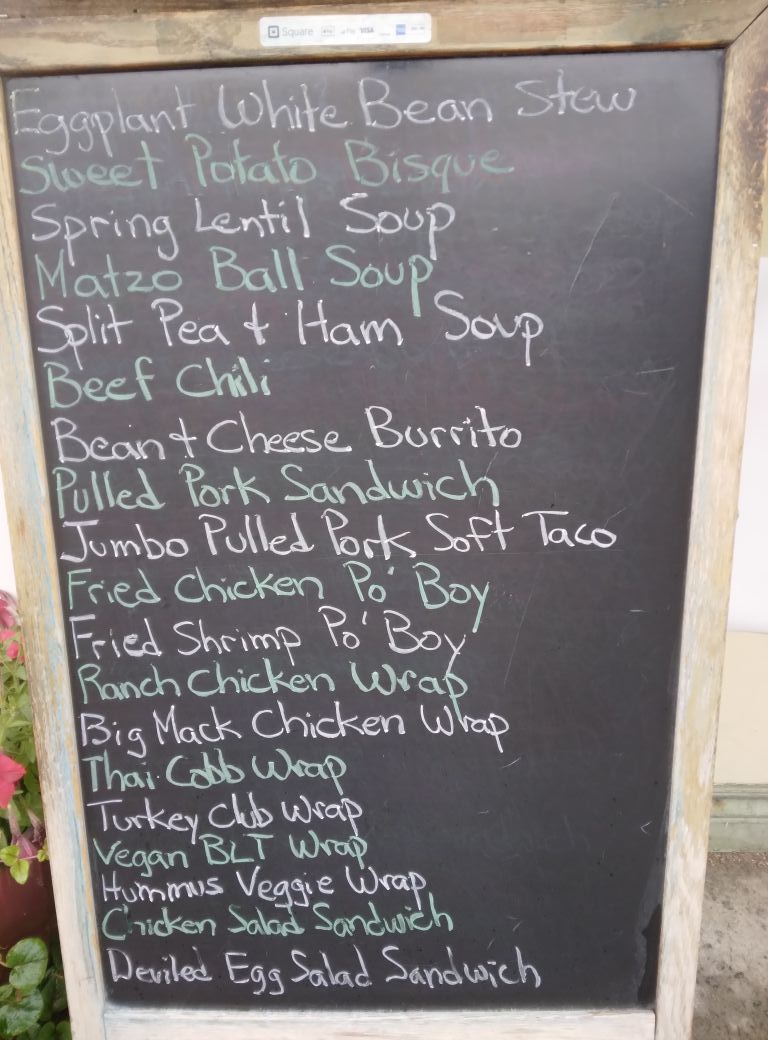 Square VISA
Eggplant White Bean Stew
Sweet Potato Bisque
Spring Lentil Soup
Matzo Ball Soup
Split Pea + Ham Soup
Beef Chili
Bean + Cheese Burrito
Pulled Pork Sandwich
Jumbo Pulled Pork Soft Taco
Fried Chicken Po' Boy
Fried Shrimp Po' Boy
Ranch Chicken Wrap
Big Mack Chicken Wrap
Thai Cobb Wrap
Turkey Club Wrap
Vegan BLT Wrap
Hummus Veggie Wrap
Chicken Salad Sandwich
Deviled Egg Salad Sandwich